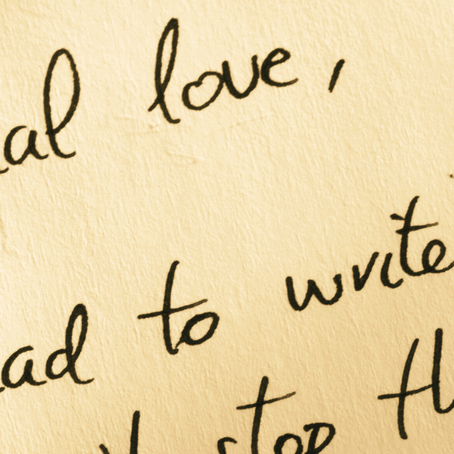 al love,
ad to write
stop th